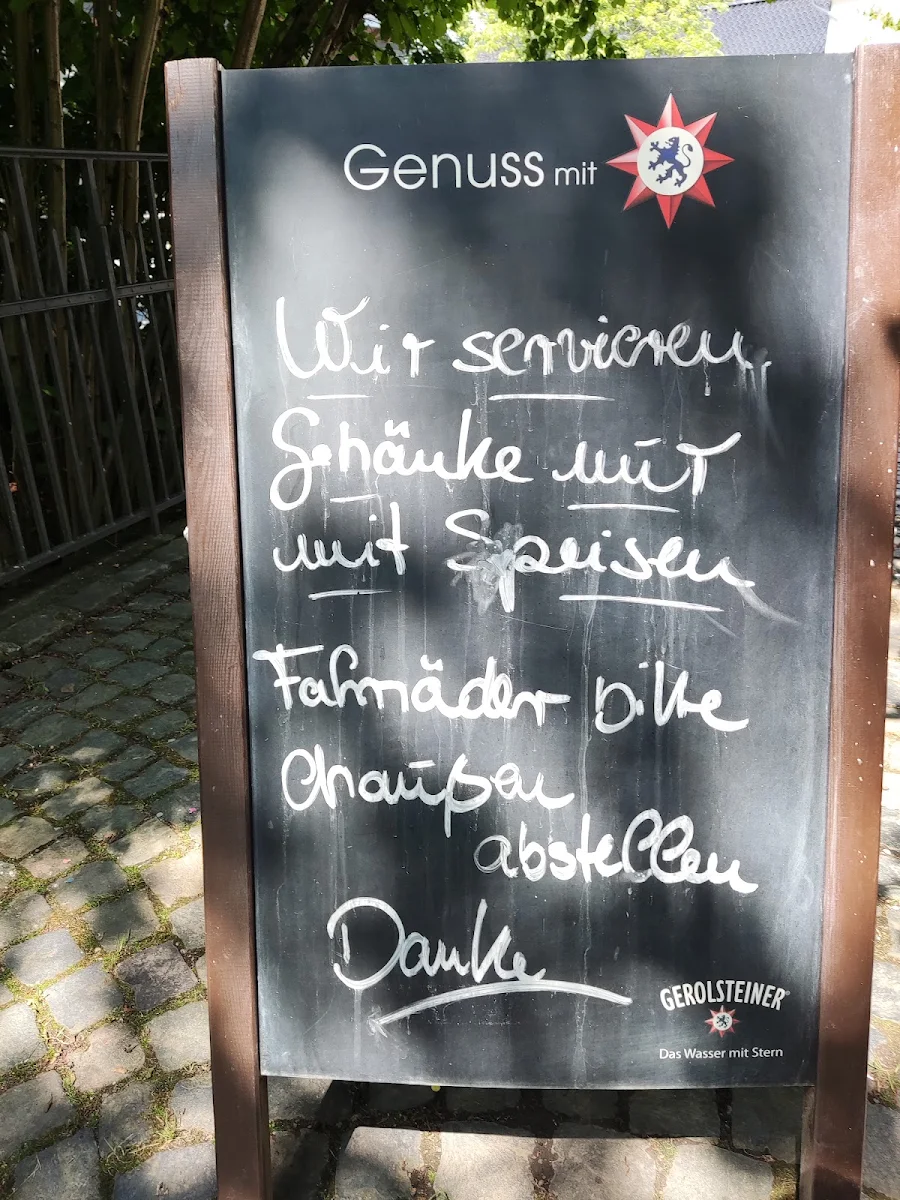 Genuss mit
Wir servieren
Getränke nur
mit Speisen
Fahrräder bitte
draußen
abstellen
Danke
GEROLSTEINER®
Das Wasser mit Stern